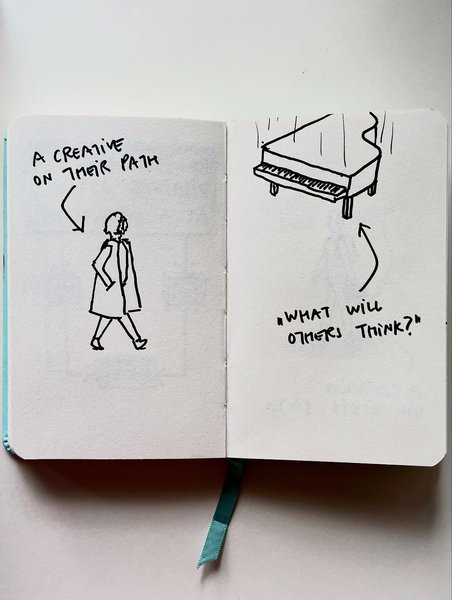 A CREATIVE
ON THEIR PATH
„WHAT WILL
OTHERS THINK?"